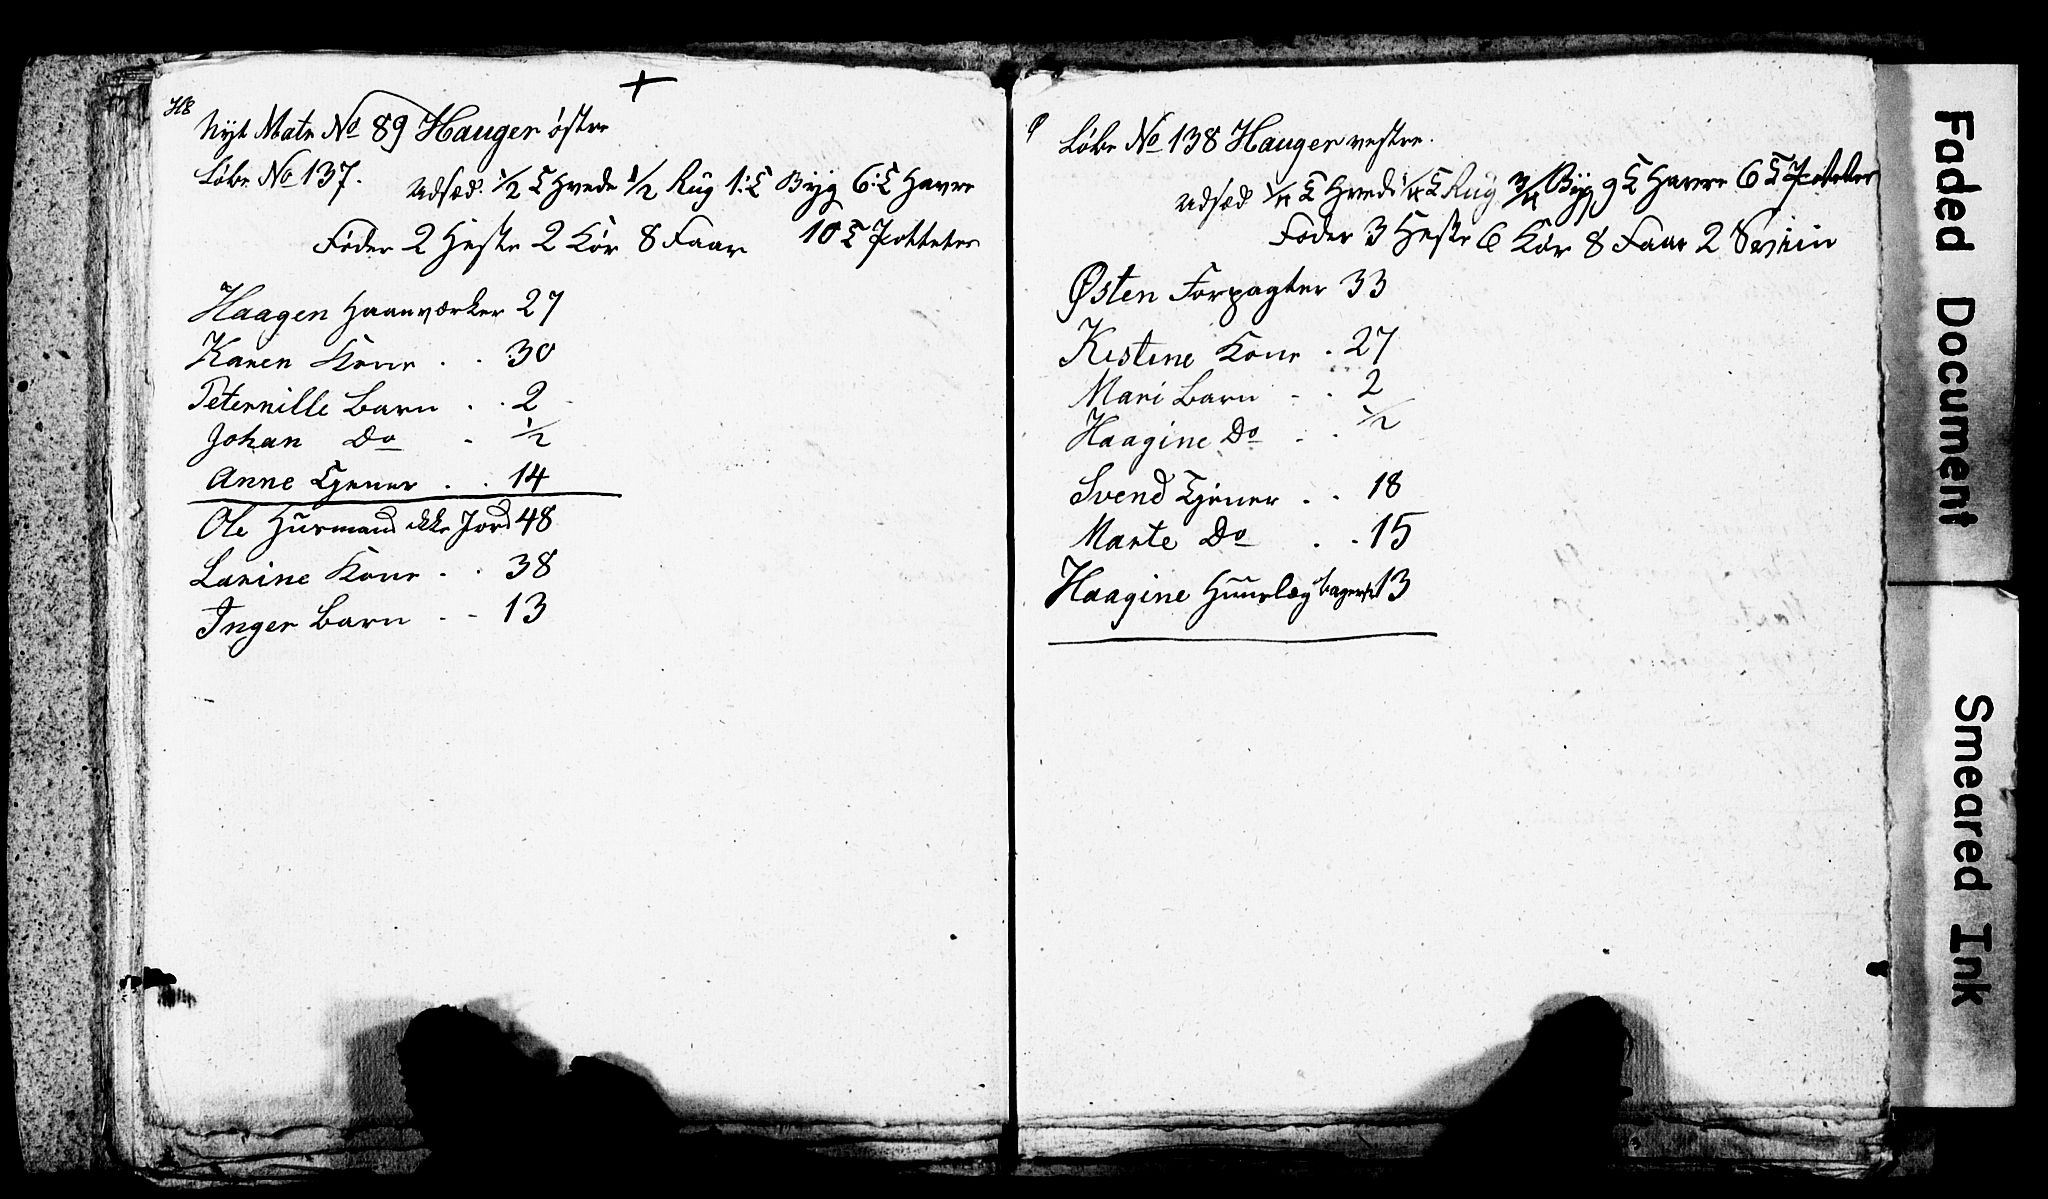 +
Nyt Matr No 89 Hauger østre
Løbe No 137.
Udsæd. 1/2 T Hvede 1/2 Rug 1:T Byg 6:T Havre
Føder 2 Heste 2 Kør 8 Faar 10 T Potteter
Haagen Haanværker 27
Karen Kone . . 30
Peternille Barn . . 2
Johan Do . 1/2
Anne Tjener . . 14
Ole Husmand ikke Jord 48
Larine Kone . . 38
Inger Barn . . 13
Løbe No 138 Hauger vestre.
Udsæd 1/4 T Hvede 1/4 T Rug 3/4 Byg 9 T Havre 6 T Potteter
Føder 3 Heste 6 Kør 8 Faar 2 Sviin
Østen Forpagter 33
Kistine Kone . 27
Mari Barn . . 2
Haagine Do . . 1/2
Svend Tjener . . 18
Marte Do . . 15
Haagine 13
Faded Document
Smeared Ink